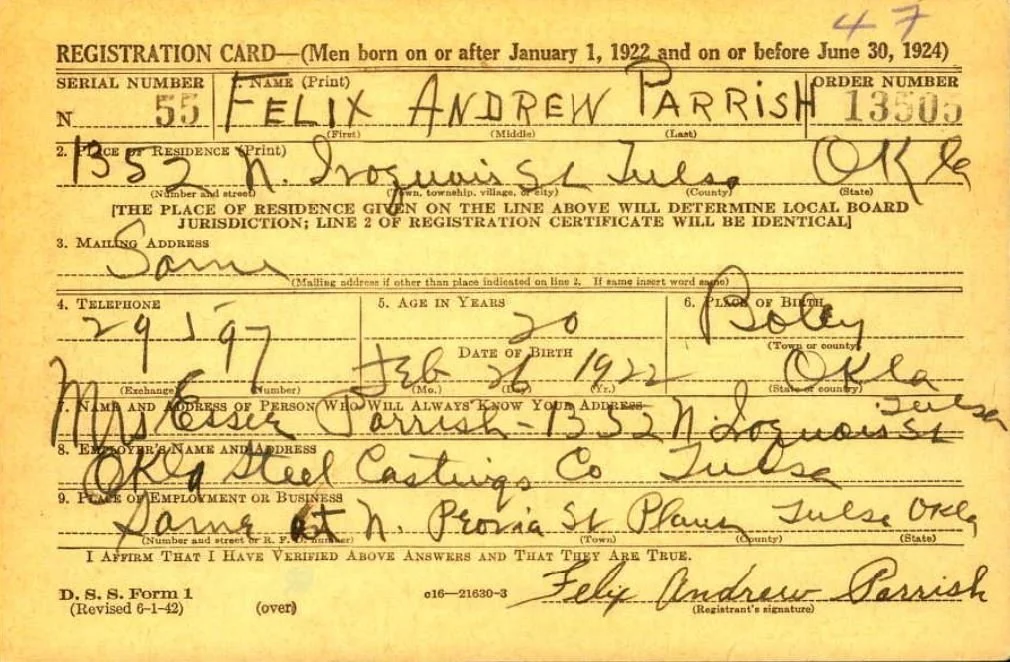 47
REGISTRATION CARD—(Men born on or after January 1, 1922 and on or before June 30, 1924)
SERIAL NUMBER 1. NAME (Print) ORDER NUMBER
N 55 FELIX ANDREW PARRISH 13505
(First) (Middle) (Last)
2. PLACE OF RESIDENCE (Print)
1352 N. Iroquois St Tulsa OKla
(Number and street) (Town, township, village, or city) (County) (State)
[THE PLACE OF RESIDENCE GIVEN ON THE LINE ABOVE WILL DETERMINE LOCAL BOARD
JURISDICTION; LINE 2 OF REGISTRATION CERTIFICATE WILL BE IDENTICAL]
3. MAILING ADDRESS
Same
(Mailing address if other than place indicated on line 2. If same insert word same)
4. TELEPHONE 5. AGE IN YEARS 6. PLACE OF BIRTH
29597 20 Boley
(Town or county)
DATE OF BIRTH
Feb 26 1922 OKla
(Exchange) (Number) (Mo.) (Day) (Yr.) (State or country)
7. NAME AND ADDRESS OF PERSON WHO WILL ALWAYS KNOW YOUR ADDRESS
Mrs Esser Parrish - 1352 N Iroquois St Tulsa
8. EMPLOYER'S NAME AND ADDRESS
OKla Steel Castings Co Tulsa
9. PLACE OF EMPLOYMENT OR BUSINESS
Same at N. Peoria St Tulsa OKla
(Number and street or R. F. D. number) (Town) (County) (State)
I AFFIRM THAT I HAVE VERIFIED ABOVE ANSWERS AND THAT THEY ARE TRUE.
D. S. S. Form 1
(Revised 6-1-42) (over) c16—21630-3 Felix Andrew Parrish
(Registrant's signature)